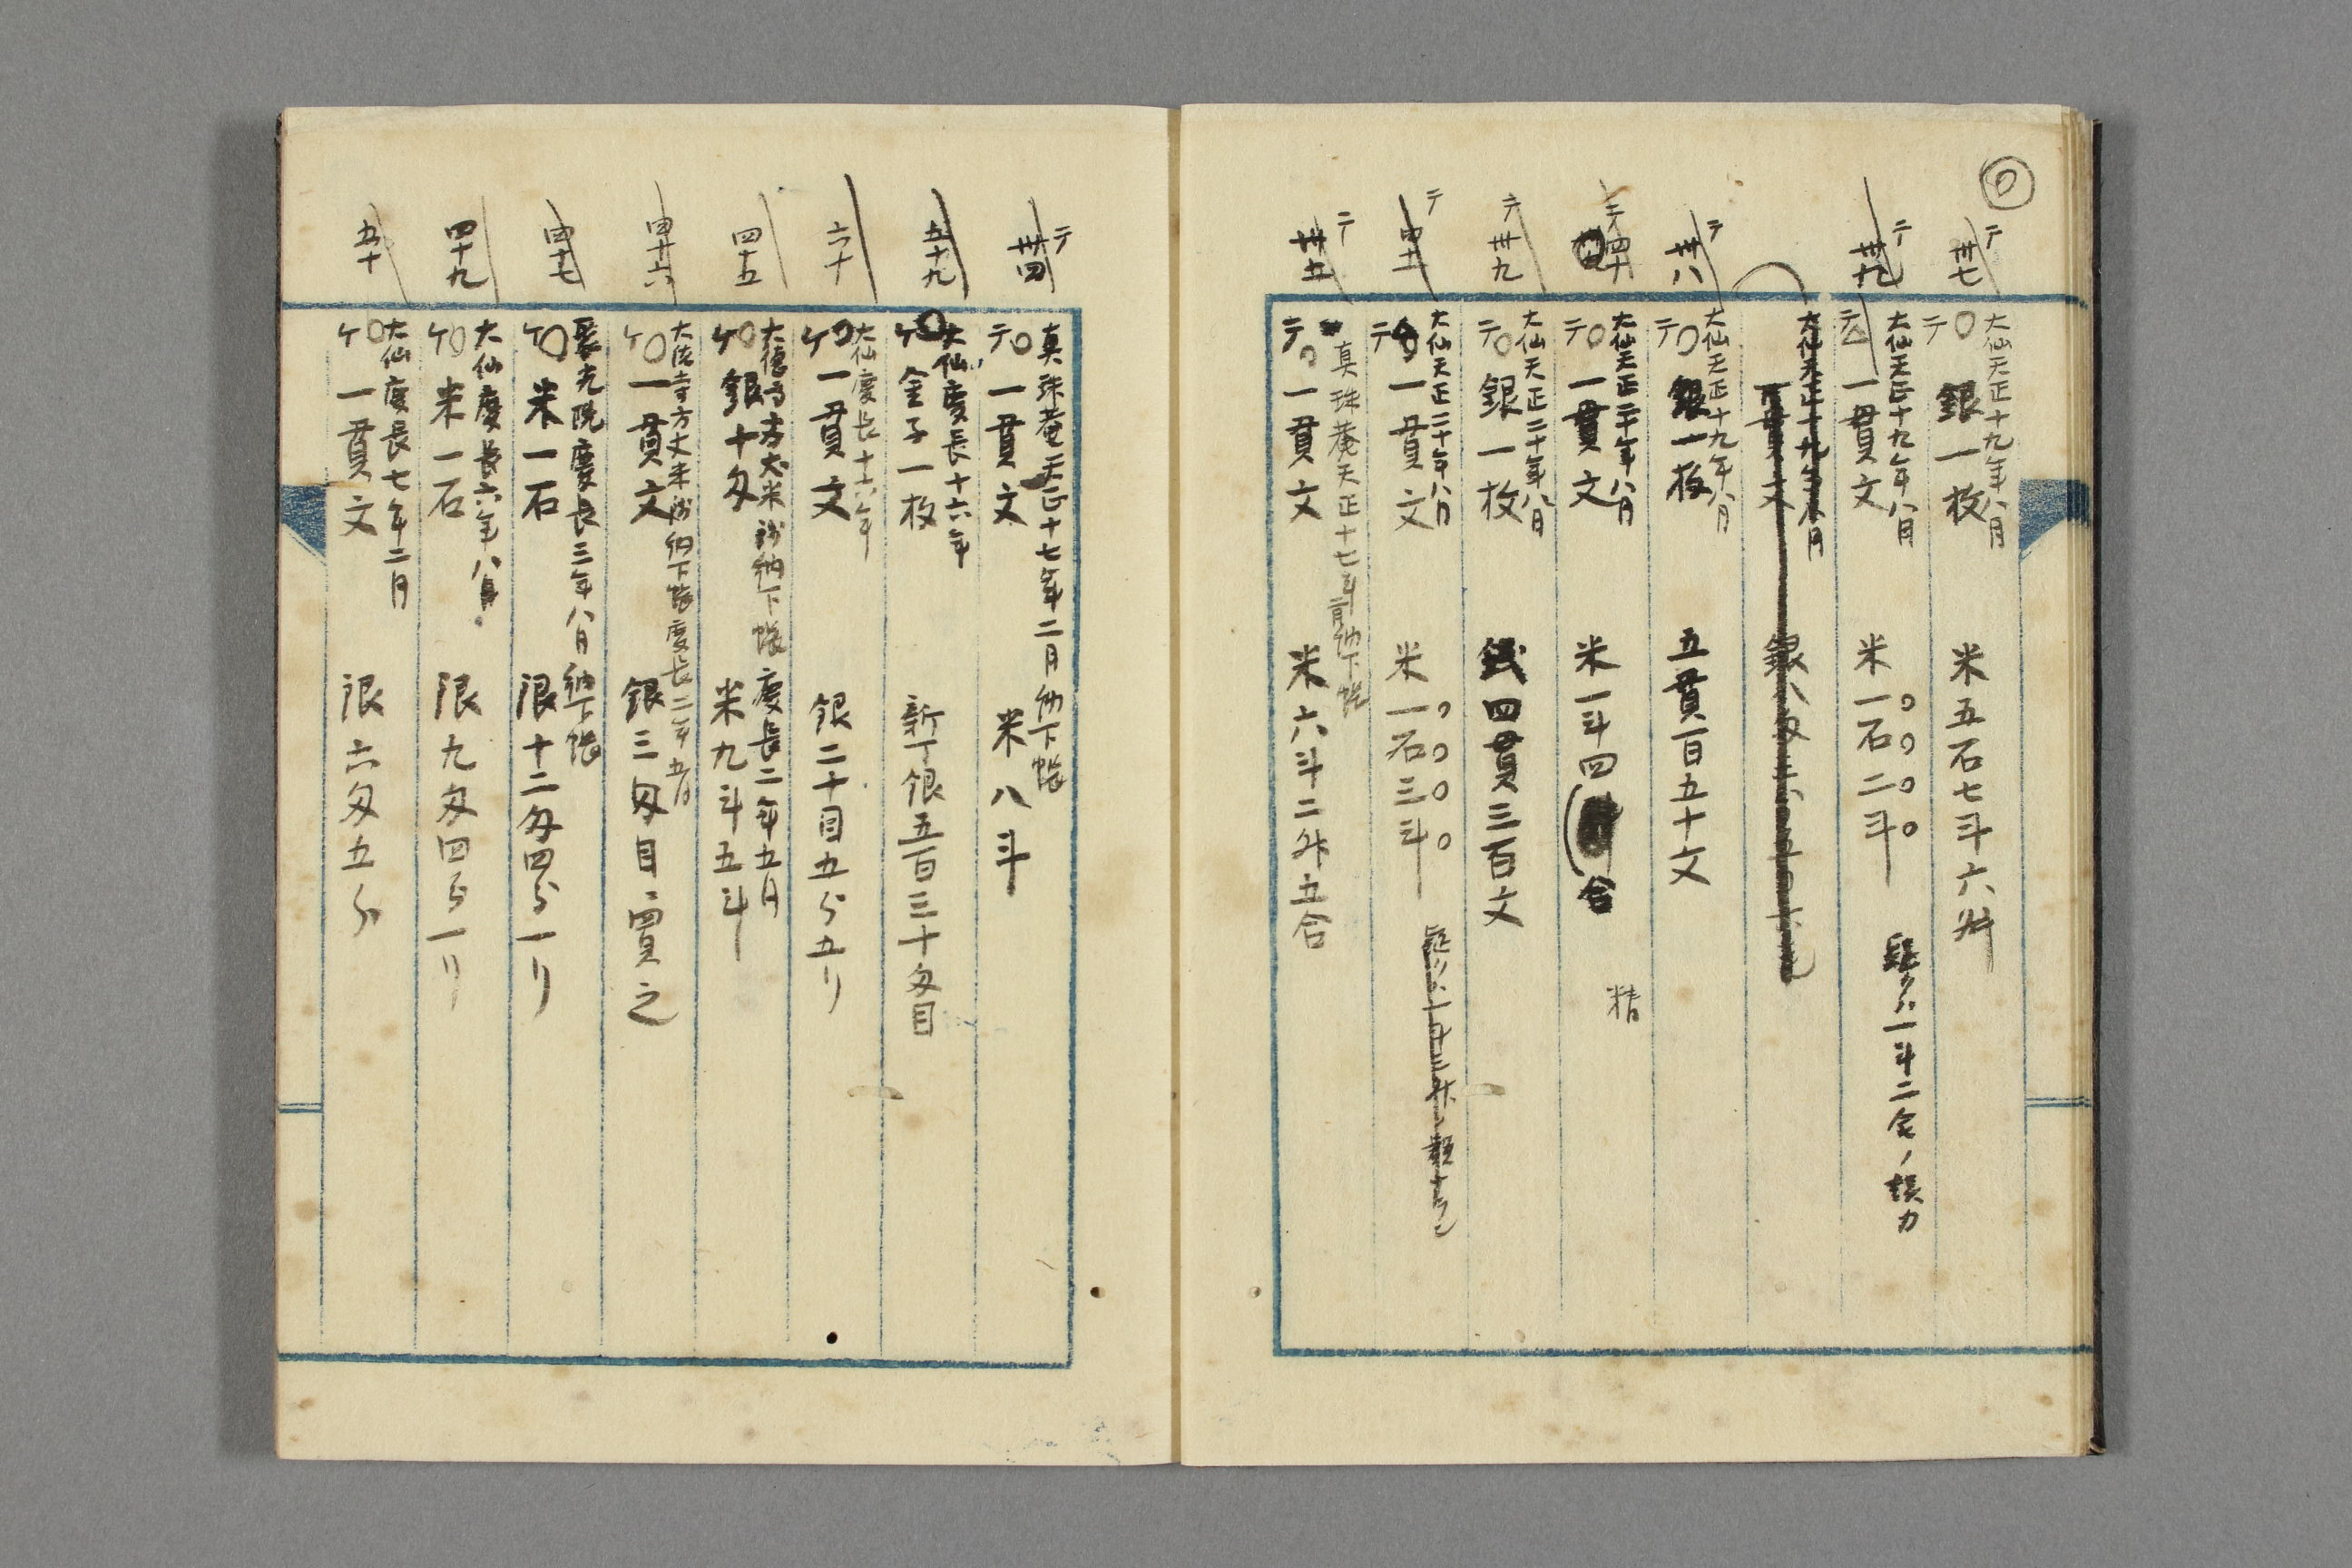 テ
卅七
大仙天正十九年八月
テ〇 銀一枚 米五石七斗六升
テ
大仙天正十九年八月
一貫文 米一石二斗
大仙天正十九年八月
一貫文
テ
卅八
大仙天正十九年八月
テ〇 銀一枚 五貫百五十文
大仙天正二十年八月
テ〇 一貫文 米一斗四 合
テ
卅九
大仙天正二十年八月
テ〇 銀一枚 銭四貫三百文
テ
大仙天正二十年八月
テ 一貫文 米一石三斗
テ
卅五
真珠菴天正十七年 納下帳
テ〇 一貫文 米六斗二升五合
テ
卅四
真珠菴天正十七年二月納下帳
テ〇 一貫文 米八斗
五十九
大仙慶長十六年
ケ〇 金子一枚 新丁銀五百三十匁目
六十
大仙慶長十六年
ケ〇 一貫文 銀二十目五分五リ
四十五
大徳寺方丈米銭納下帳慶長二年五月
ケ〇 銀十匁 米九斗五升
四十六
大徳寺方丈米銭納下帳慶長二年五月
ケ〇 一貫文 銀三匁目ニ買之
四十七
聚光院慶長三年八月納下帳
ケ〇 米一石 限十二匁四分一リ
四十九
大仙慶長六年八月
ケ〇 米一石 限九匁四分一リ
五十
大仙慶長七年二月
ケ〇 一貫文 限六匁五分